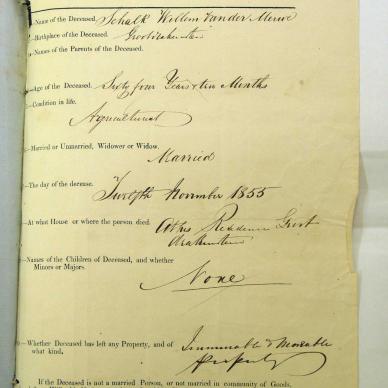 Name of the Deceased. Schalk Willem Vander Merwe
Birthplace of the Deceased.
Names of the Parents of the Deceased.
Age of the Deceased. Sixty four Years & ten Months
Condition in life.
Agricultural
Married or Unmarried, Widower or Widow.
Married
The day of the decease.
Twelfth November 1855
At what House or where the person died. At his Residence Groot
Names of the Children of Deceased, and whether
Minors or Majors.
None
Whether Deceased has left any Property, and of
what kind. Immovable & Moveable
Property
If the Deceased is not a married Person, or not married in community of Goods,